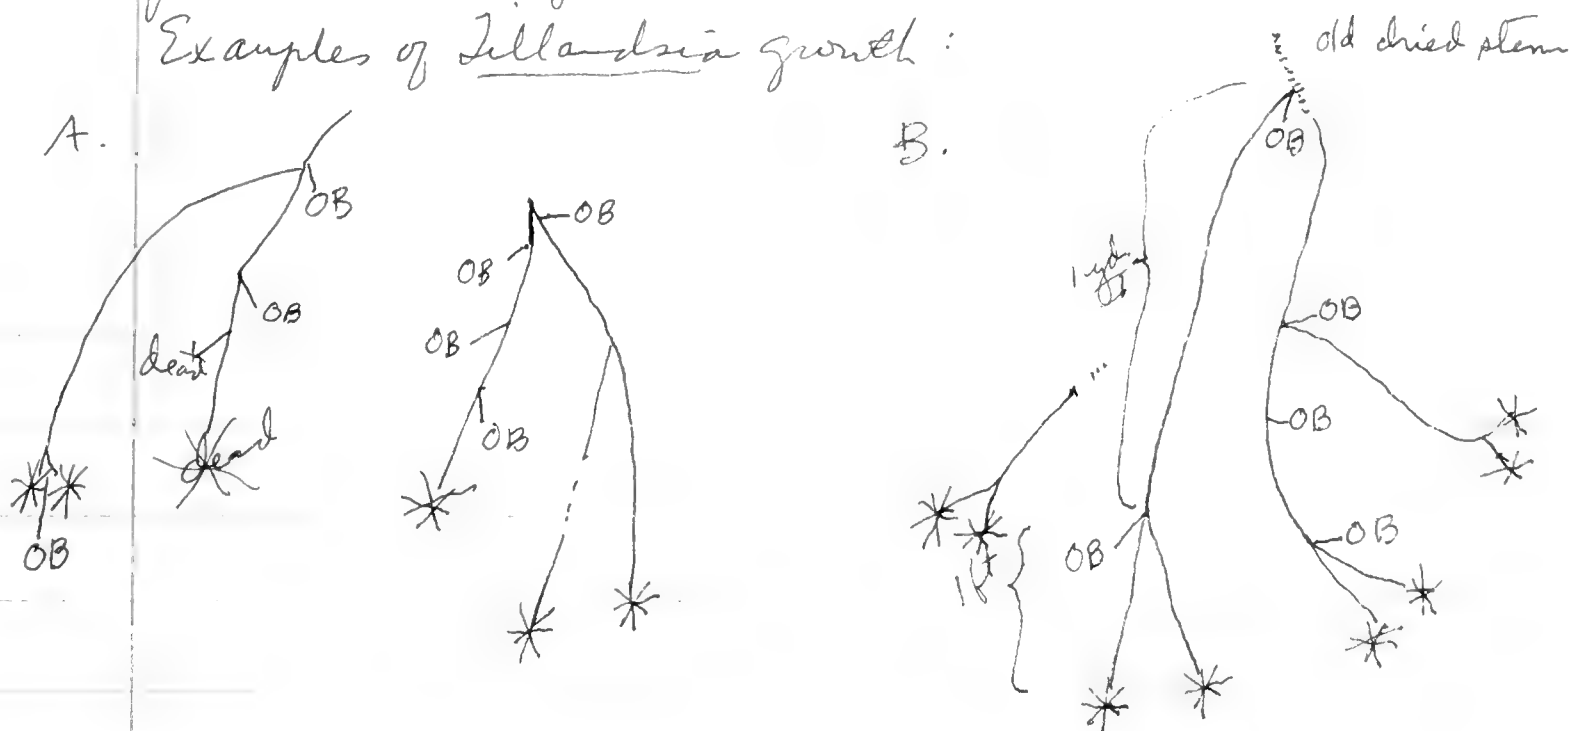 Examples of Tillandsia growth:
old dried stem
A.
B.
OB
OB
OB
OB
OB
dead
OB
OB
dead
OB
1 yd.
OB
OB
OB
OB
1 ft